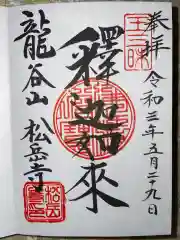 奉拝
令和三年五月二十九日
釋迦如来
龍谷山
松岳寺